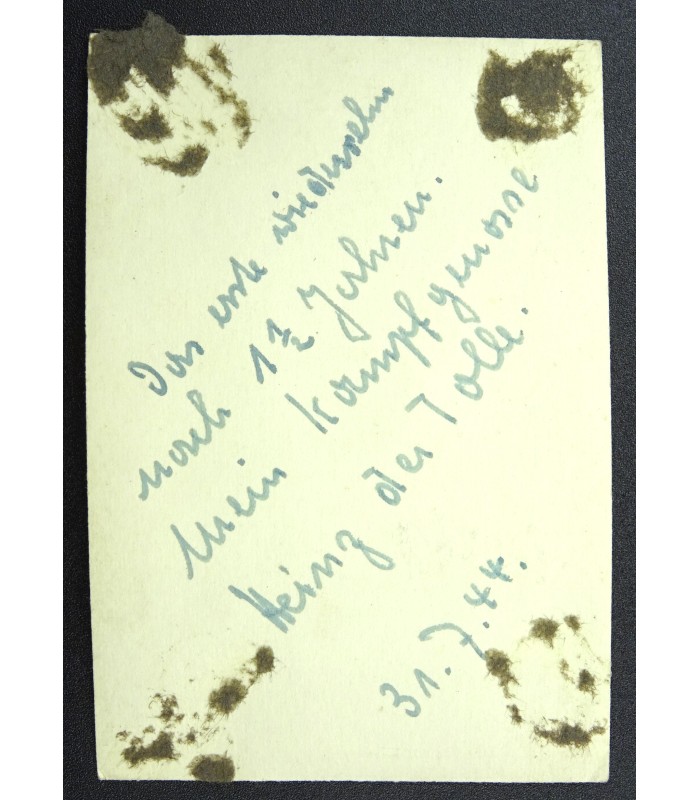 Das erste wiedersehn
nach 1 1/2 Jahren.
Mein Kampfgenosse
Heinz der Tolle.
31.7.44.